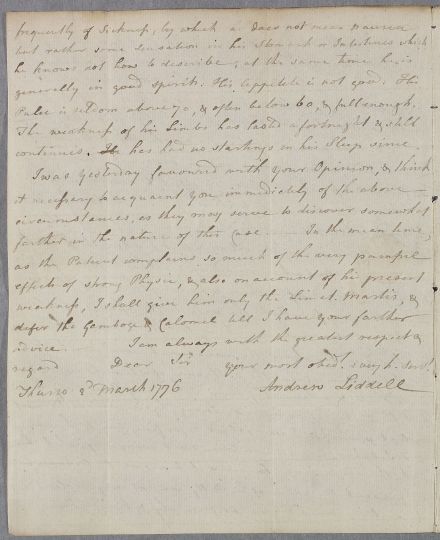 frequently of Sickness, by which he does not mean nausea
but rather some sensation in his Stomach or Intestines which
he knows not how to describe; at the same time he is
generally in good spirits. His appetite is not good. His
Pulse is seldom above 70, & often below 60, & full enough.
The weakness of his Limbs has lasted a fortnight & still
continues. He has had no startings in his Sleep since.
I was yesterday favoured with your Opinion, & think
it necessary to acquaint you immediately of the above
circumstances, as they may serve to discover somewhat
farther in the nature of this Case. In the mean time,
as the Patient complains so much of the very painful
effects of strong Physic, & also on account of his present
weakness, I shall give him only the Tinct. Martis, &
defer the Gamboge & Calomel till I have your farther
advice. I am always with the greatest respect &
regard Dear Sir your most obedt. humb. Servt.
Thurso 2d. March 1776 Andrew Liddell